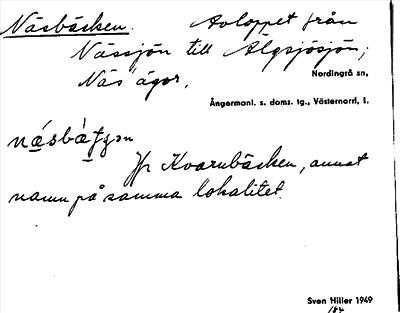 Näsbäcken. Avloppet från
Nässjön till Älgsjösjön;
Näs ägor,
Nordingrå sn,
Ångermanl. s. doms. tg., Västernorrl, l.
Jfr Kvarnbäcken, annat
namn på samma lokalitet.
Sven Hiller 1949
184